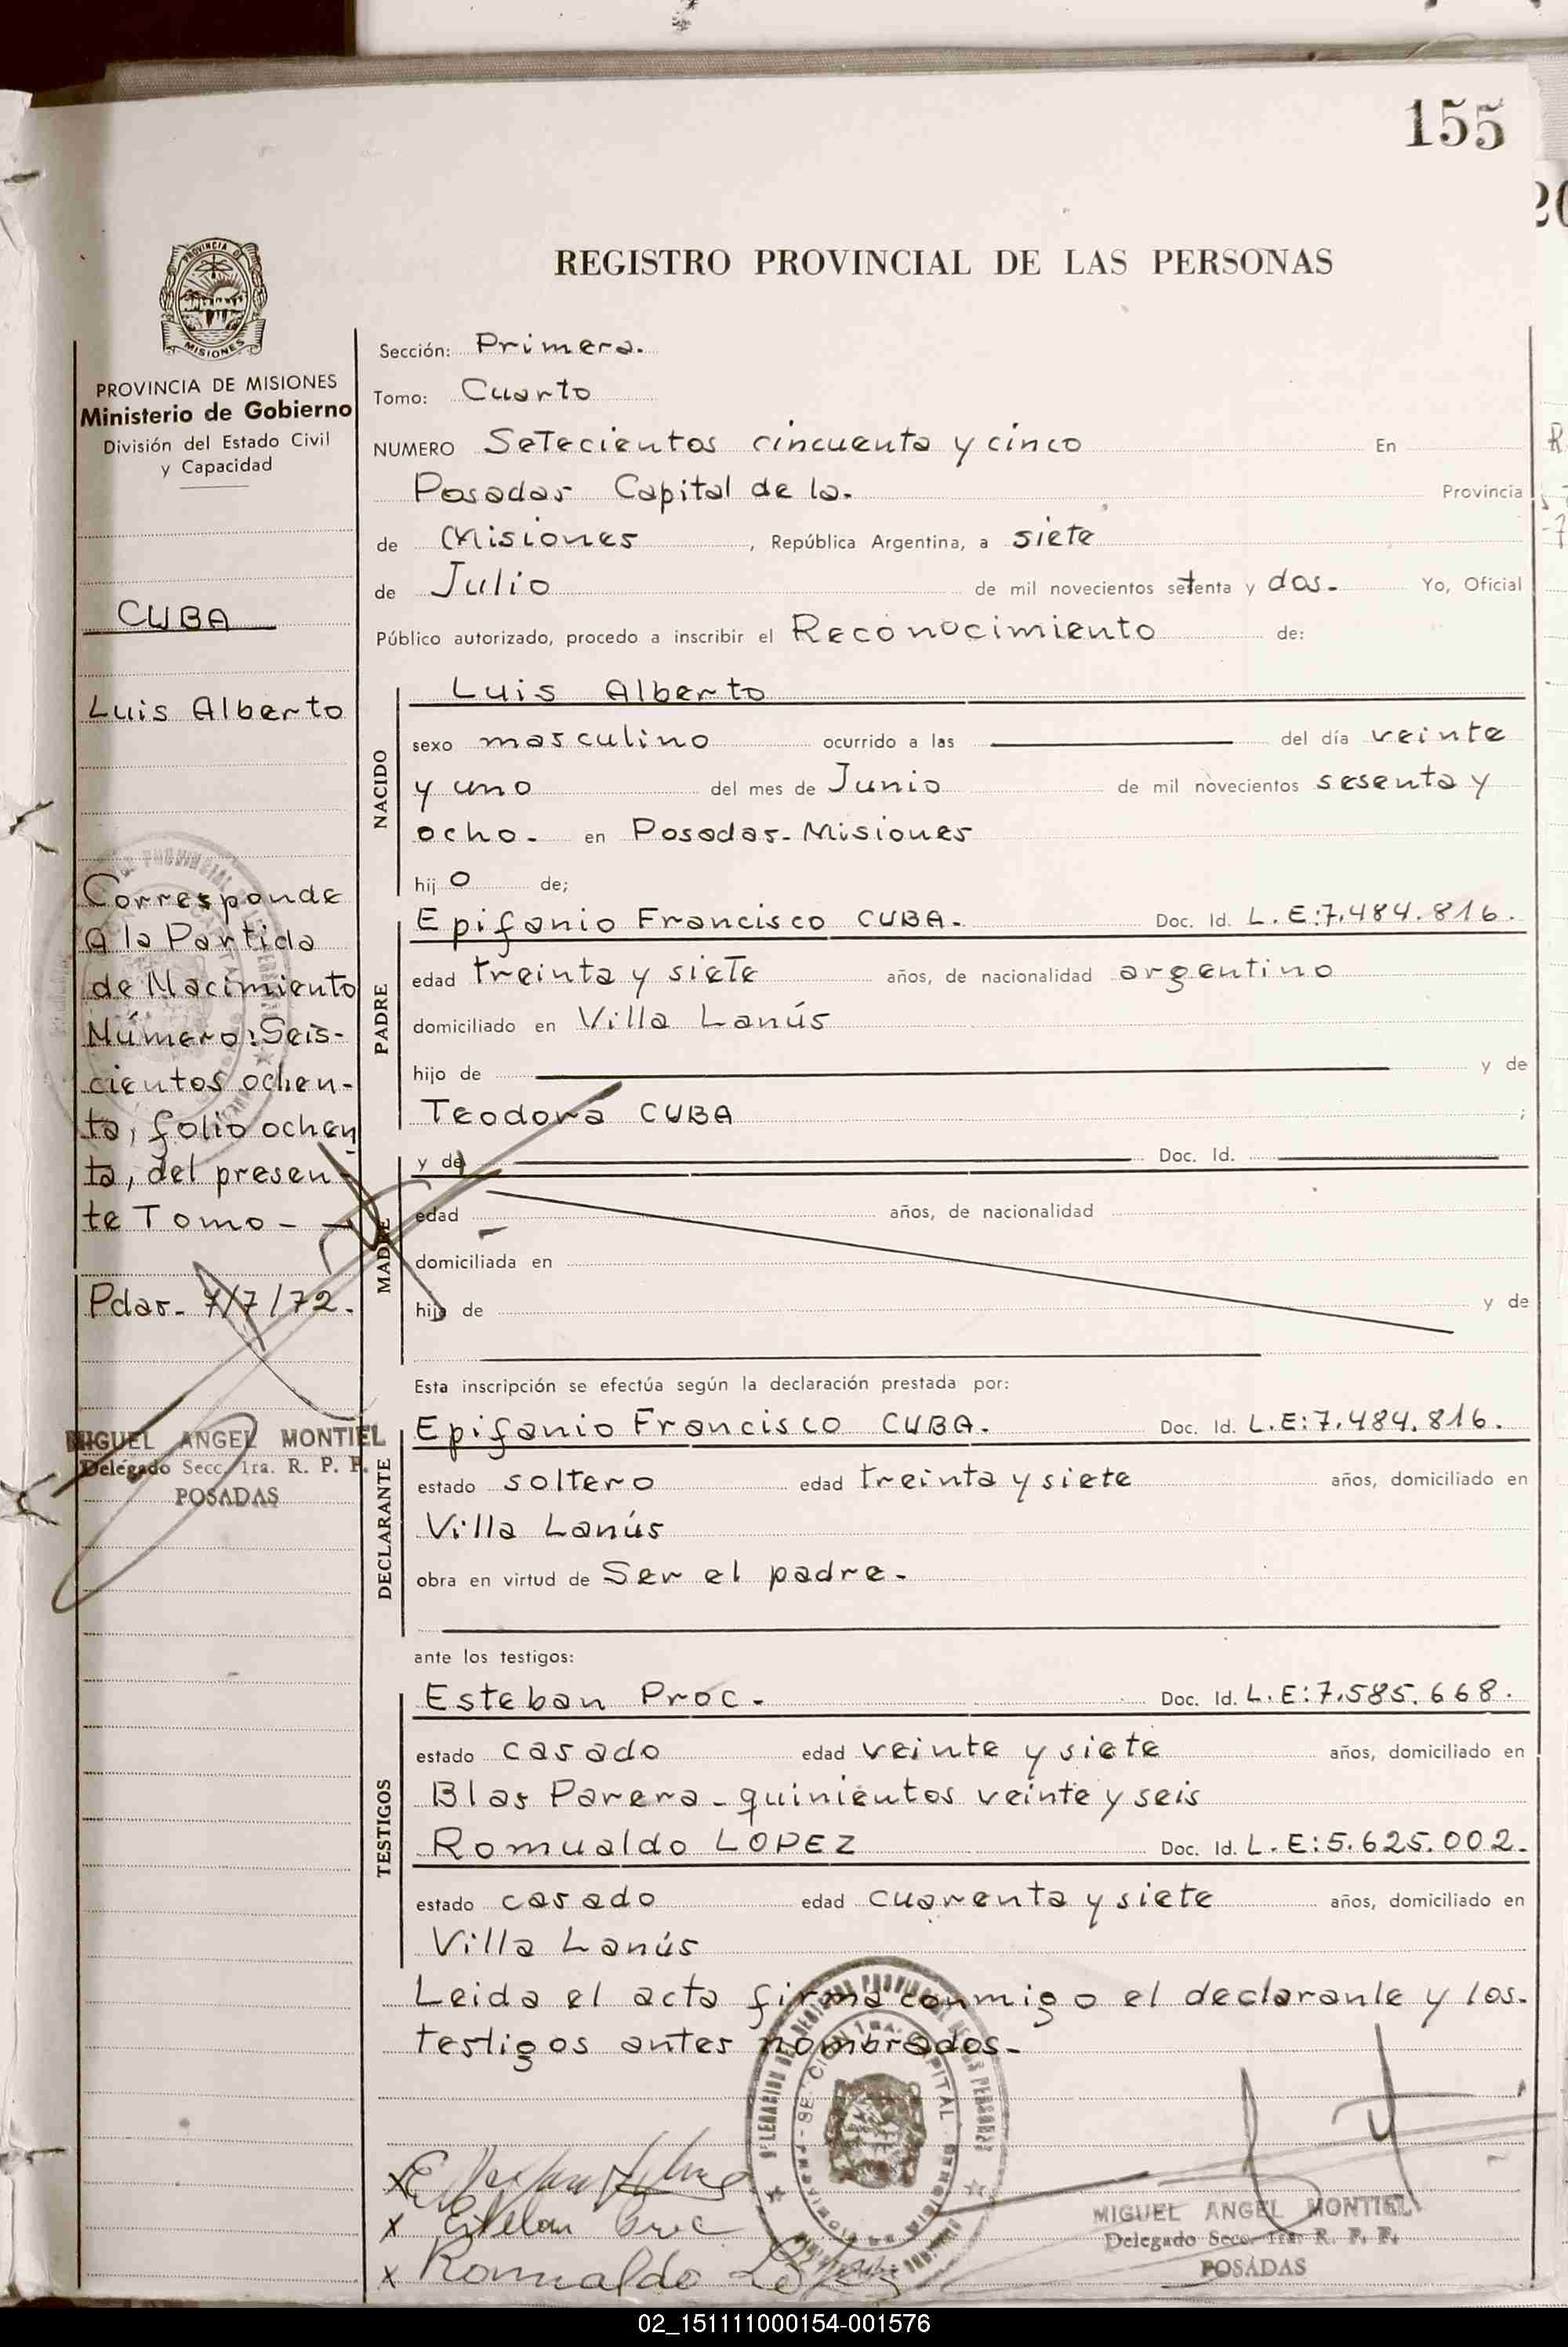 155
PROVINCIA DE
MISIONES
PROVINCIA DE MISIONES
Ministerio de Gobierno
División del Estado Civil
y Capacidad
CUBA
Luis Alberto
Corresponde
A la Partida
de Nacimiento
Número: Seis-
cientos ochen-
ta, folio ochen
ta, del presen-
te Tomo -
Pdas- 7/7/72.
MIGUEL ANGEL MONTIEL
Delegado Secc. 1ra. R. P. P.
POSADAS
REGISTRO PROVINCIAL DE LAS PERSONAS
Sección: Primera.
Tomo: Cuarto
NUMERO Setecientos cincuenta y cinco En
Posadas Capital de la. Provincia
de Misiones, República Argentina, a siete
de Julio de mil novecientos setenta y dos. Yo, Oficial
Público autorizado, procedo a inscribir el Reconocimiento de:
NACIDO
Luis Alberto
sexo masculino ocurrido a las del día veinte
y uno del mes de Junio de mil novecientos sesenta y
ocho. en Posadas-Misiones
hijo de;
PADRE
Epifanio Francisco CUBA. Doc. Id. L.E:7.484.816.
edad treinta y siete años, de nacionalidad argentino
domiciliado en Villa Lanús
hijo de y de
Teodora CUBA ;
MADRE
y de Doc. Id.
edad años, de nacionalidad
domiciliada en
hija de y de
Esta inscripción se efectúa según la declaración prestada por:
DECLARANTE
Epifanio Francisco CUBA. Doc. Id. L.E:7.484.816.
estado soltero edad treinta y siete años, domiciliado en
Villa Lanús
obra en virtud de Ser el padre.
ante los testigos:
TESTIGOS
Esteban Proc. Doc. Id. L.E:7.585.668.
estado casado edad veinte y siete años, domiciliado en
Blas Parera - quinientos veinte y seis
Romualdo LOPEZ Doc. Id. L.E:5.625.002.
estado casado edad cuarenta y siete años, domiciliado en
Villa Lanús
Leida el acta firma conmigo el declarante y los.
testigos antes nombrados-
x
x Esteban Proc
x Romualdo López
MIGUEL ANGEL MONTIEL
Delegado Secc. 1ra. R. P. P.
POSADAS
02_151111000154-001576